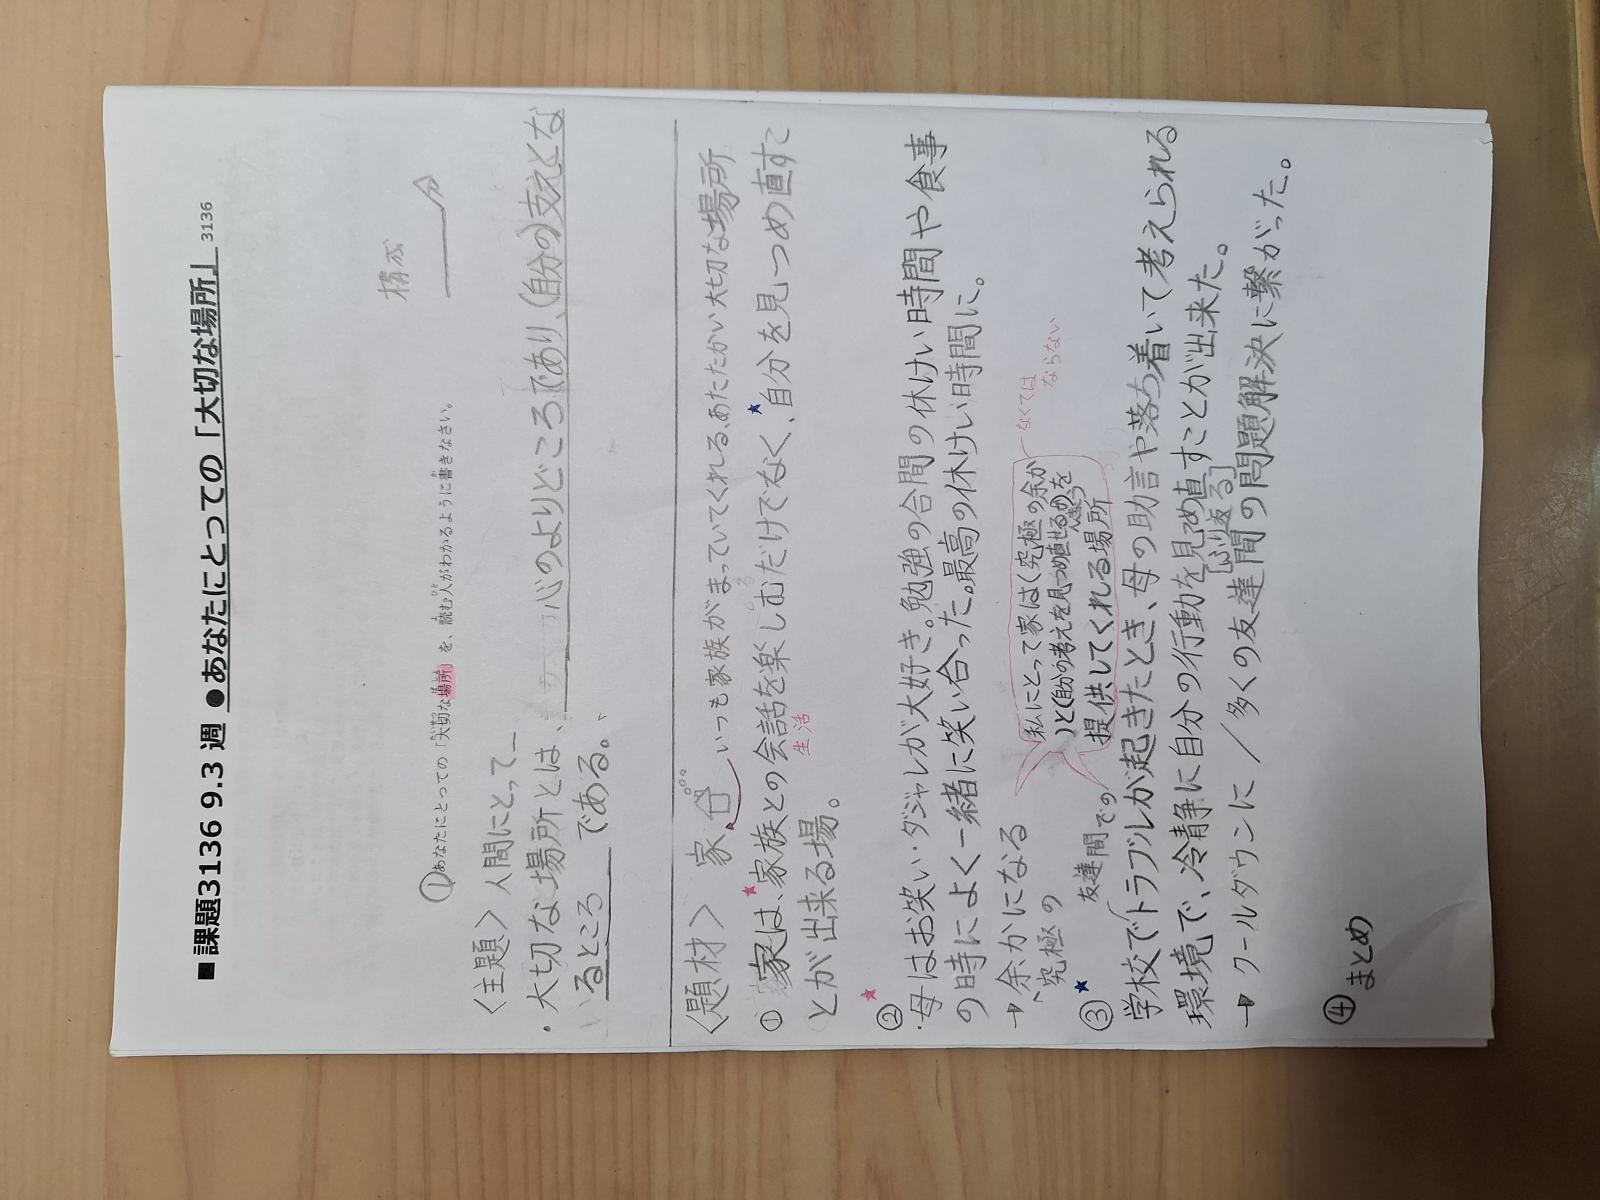 ■課題3136 9.3 週 ●あなたにとっての「大切な場所」 3136
構成
分
①あなたにとっての「大切な場所」を、読む人がわかるように書きなさい。
〈主題〉人間にとって
・大切な場所とは、心のよりどころであり、(自分の)支えとな
いるところ である。
〈題材〉家 いつも家族がまっていてくれる、あたたかい大切な場所
①家は、家族との会話を楽しむだけでなく、自分を見つめ直すこ
生活
とが出来る場。
②・母はお笑い・ダジャレが大好き。勉強の合間の休けい時間や食事
の時によく一緒に笑い合った。最高の休けい時間に。
→余かになる
究極の
私にとって家は(究極の余か
)と(自分の考えを見つめ直せるかん境)を
提供してくれる場所
なくては
ならない
③
友達間での
学校でトラブルが起きたとき、母の助言や落ち着いて考えられる
環境で、冷静に自分の行動を見つめ直すことが出来た。
[ふり返る]
→クールダウンに/多くの友達間の問題解決に繋がった。
④まとめ